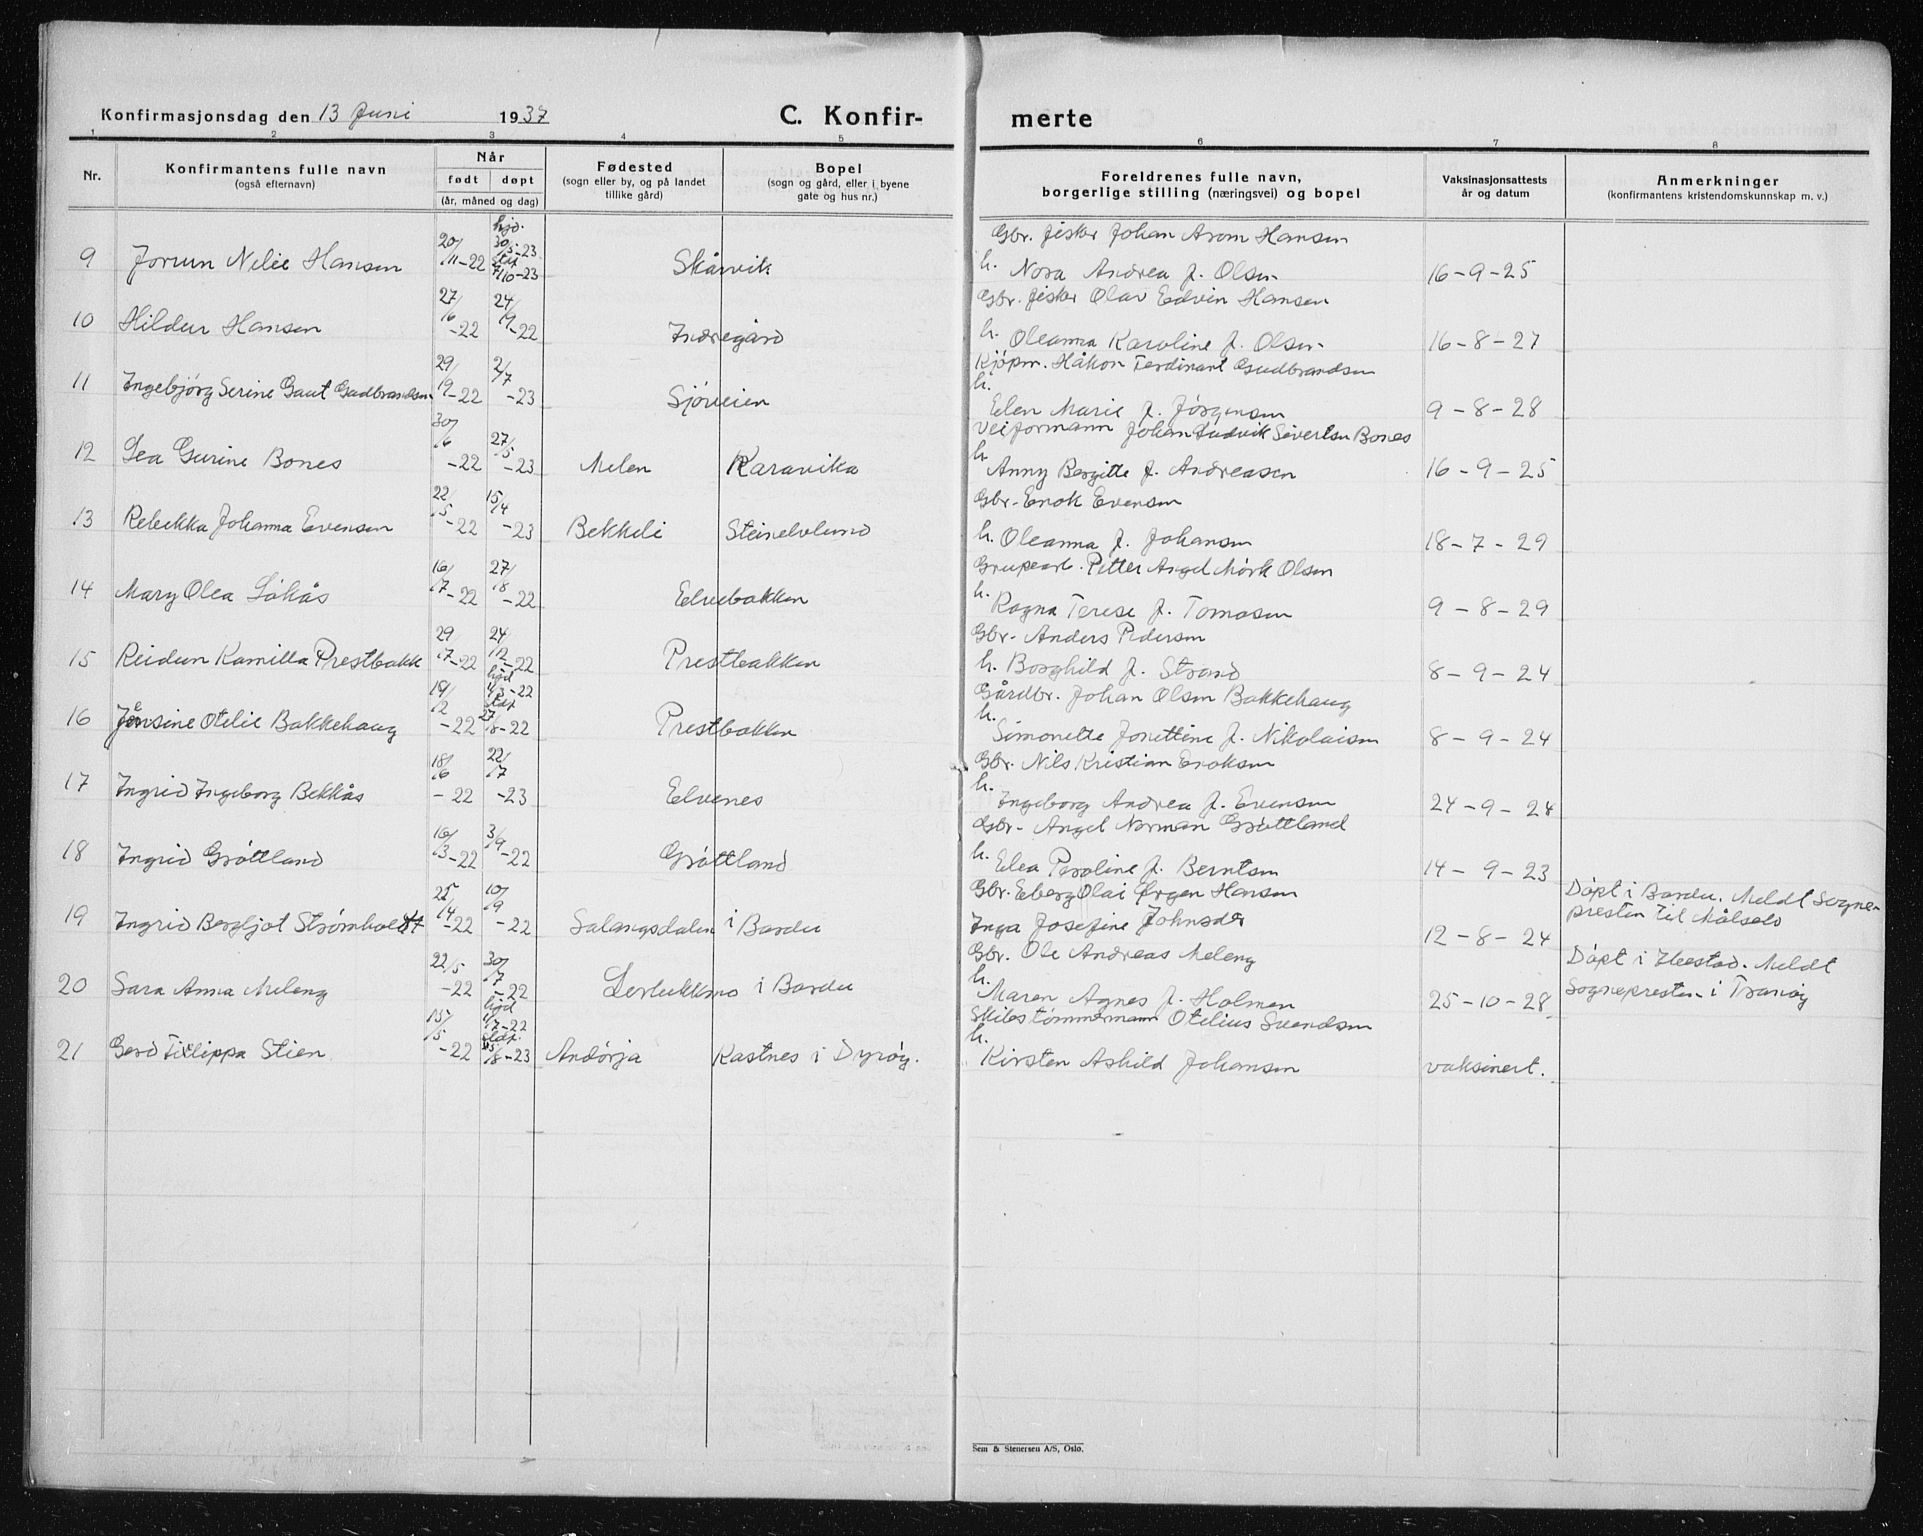 Konfirmasjonsdag den 13 Juni 1937
C. Konfir-
merte
1 2 3 4 5 6 7 8
Nr.
Konfirmantens fulle navn
(også efternavn)
Når
født døpt
(år, måned og dag)
Fødested
(sogn eller by, og på landet
tillike gård)
Bopel
(sogn og gård, eller i byene
gate og hus nr.)
Foreldrenes fulle navn,
borgerlige stilling (næringsvei) og bopel
Vaksinasjonsattests
år og datum
Anmerkninger
(konfirmantens kristendomskunnskap m. v.)
Gbr. fisker Johan Arom Hansen
9 Jorun Nelie Hansen 20/11-22 hjd. 30/5-23 stdf. 7/10-23 Skårvik h. Nora Andrea f. Olsen 16-9-25
Gbr. fisker Olav Edvin Hansen
10 Hildur Hansen 27/6-22 24/9-22 Indregård h. Oleanna Karoline f. Olsen 16-8-27
Kjöpm. Håkon Ferdinant Gudbrandsen
11 Ingebjörg Serine Gaut Gudbrandsen 29/9-22 2/7-23 Sjöveien h. Elen Marie f. Jörgensen 9-8-28
Veiformann Johan Ludvik Sivertsen Bones
12 Lea Gurine Bones 30/6-22 27/5-23 Melen Karavika h. Anny Bergitte f. Andreasen 16-9-25
Gbr. Enok Evensen
13 Rebekka Johanna Evensen 22/5-22 15/4-23 Bekkeli Steinelvlund h. Oleanna f. Johansen 18-7-29
Grupearb. Petter Angel Mörk Olsen
14 Mary Olea Lökås 16/7-22 27/8-22 Elvebakken h. Ragna Terese f. Tomasen 9-8-29
Gbr. Anders Pedersen
15 Reidun Kamilla Prestbakk 29/7-22 24/12-22 Prestbakken h. Borghild f. Strand 8-9-24
Gårdbr. Johan Olsen Bakkehaug
16 Jensine Otelie Bakkehaug 19/2-22 hjd 4/3-22 stdf. 27/8-22 Prestbakken h. Simonette Jonettine f. Nikolaisen 8-9-24
Gbr. Nils Kristian Enoksen
17 Ingrid Ingeborg Bekkås 18/6-22 22/7-23 Elvenes h. Ingeborg Andrea f. Evensen 24-9-24
Gbr. Angel Norman Gröttland
18 Ingrid Gröttland 16/3-22 3/9-22 Gröttland h. Elea Paroline f. Berntsen 14-9-23
Gbr. Eberg Olai Örgen Hansen Döpt i Bardu. Meldt Sogne-
19 Ingrid Bergljot Strømholdt 25/4-22 10/9-22 Salangsdalen i Bardu Inga Josefine Johnsdr 12-8-24 presten til Målselv
Gbr. Ole Andreas Meleng Döpt i Ibestad. Meldt
20 Sara Anna Meleng 22/5-22 30/7-22 i Bardu h. Maren Agnes f. Holmen 25-10-28 Sognepresten i Tranöy
Skibstömmermann Otelius Svendsen
21 Gerd Fillippa Stien 15/5-22 hjd 4/7-22 stdf. 5/8-23 Andörja Kastnes i Dyröy. h. Kirsten Ashild Johansen vaksinert.
Sem & Stenersen A/S, Oslo.